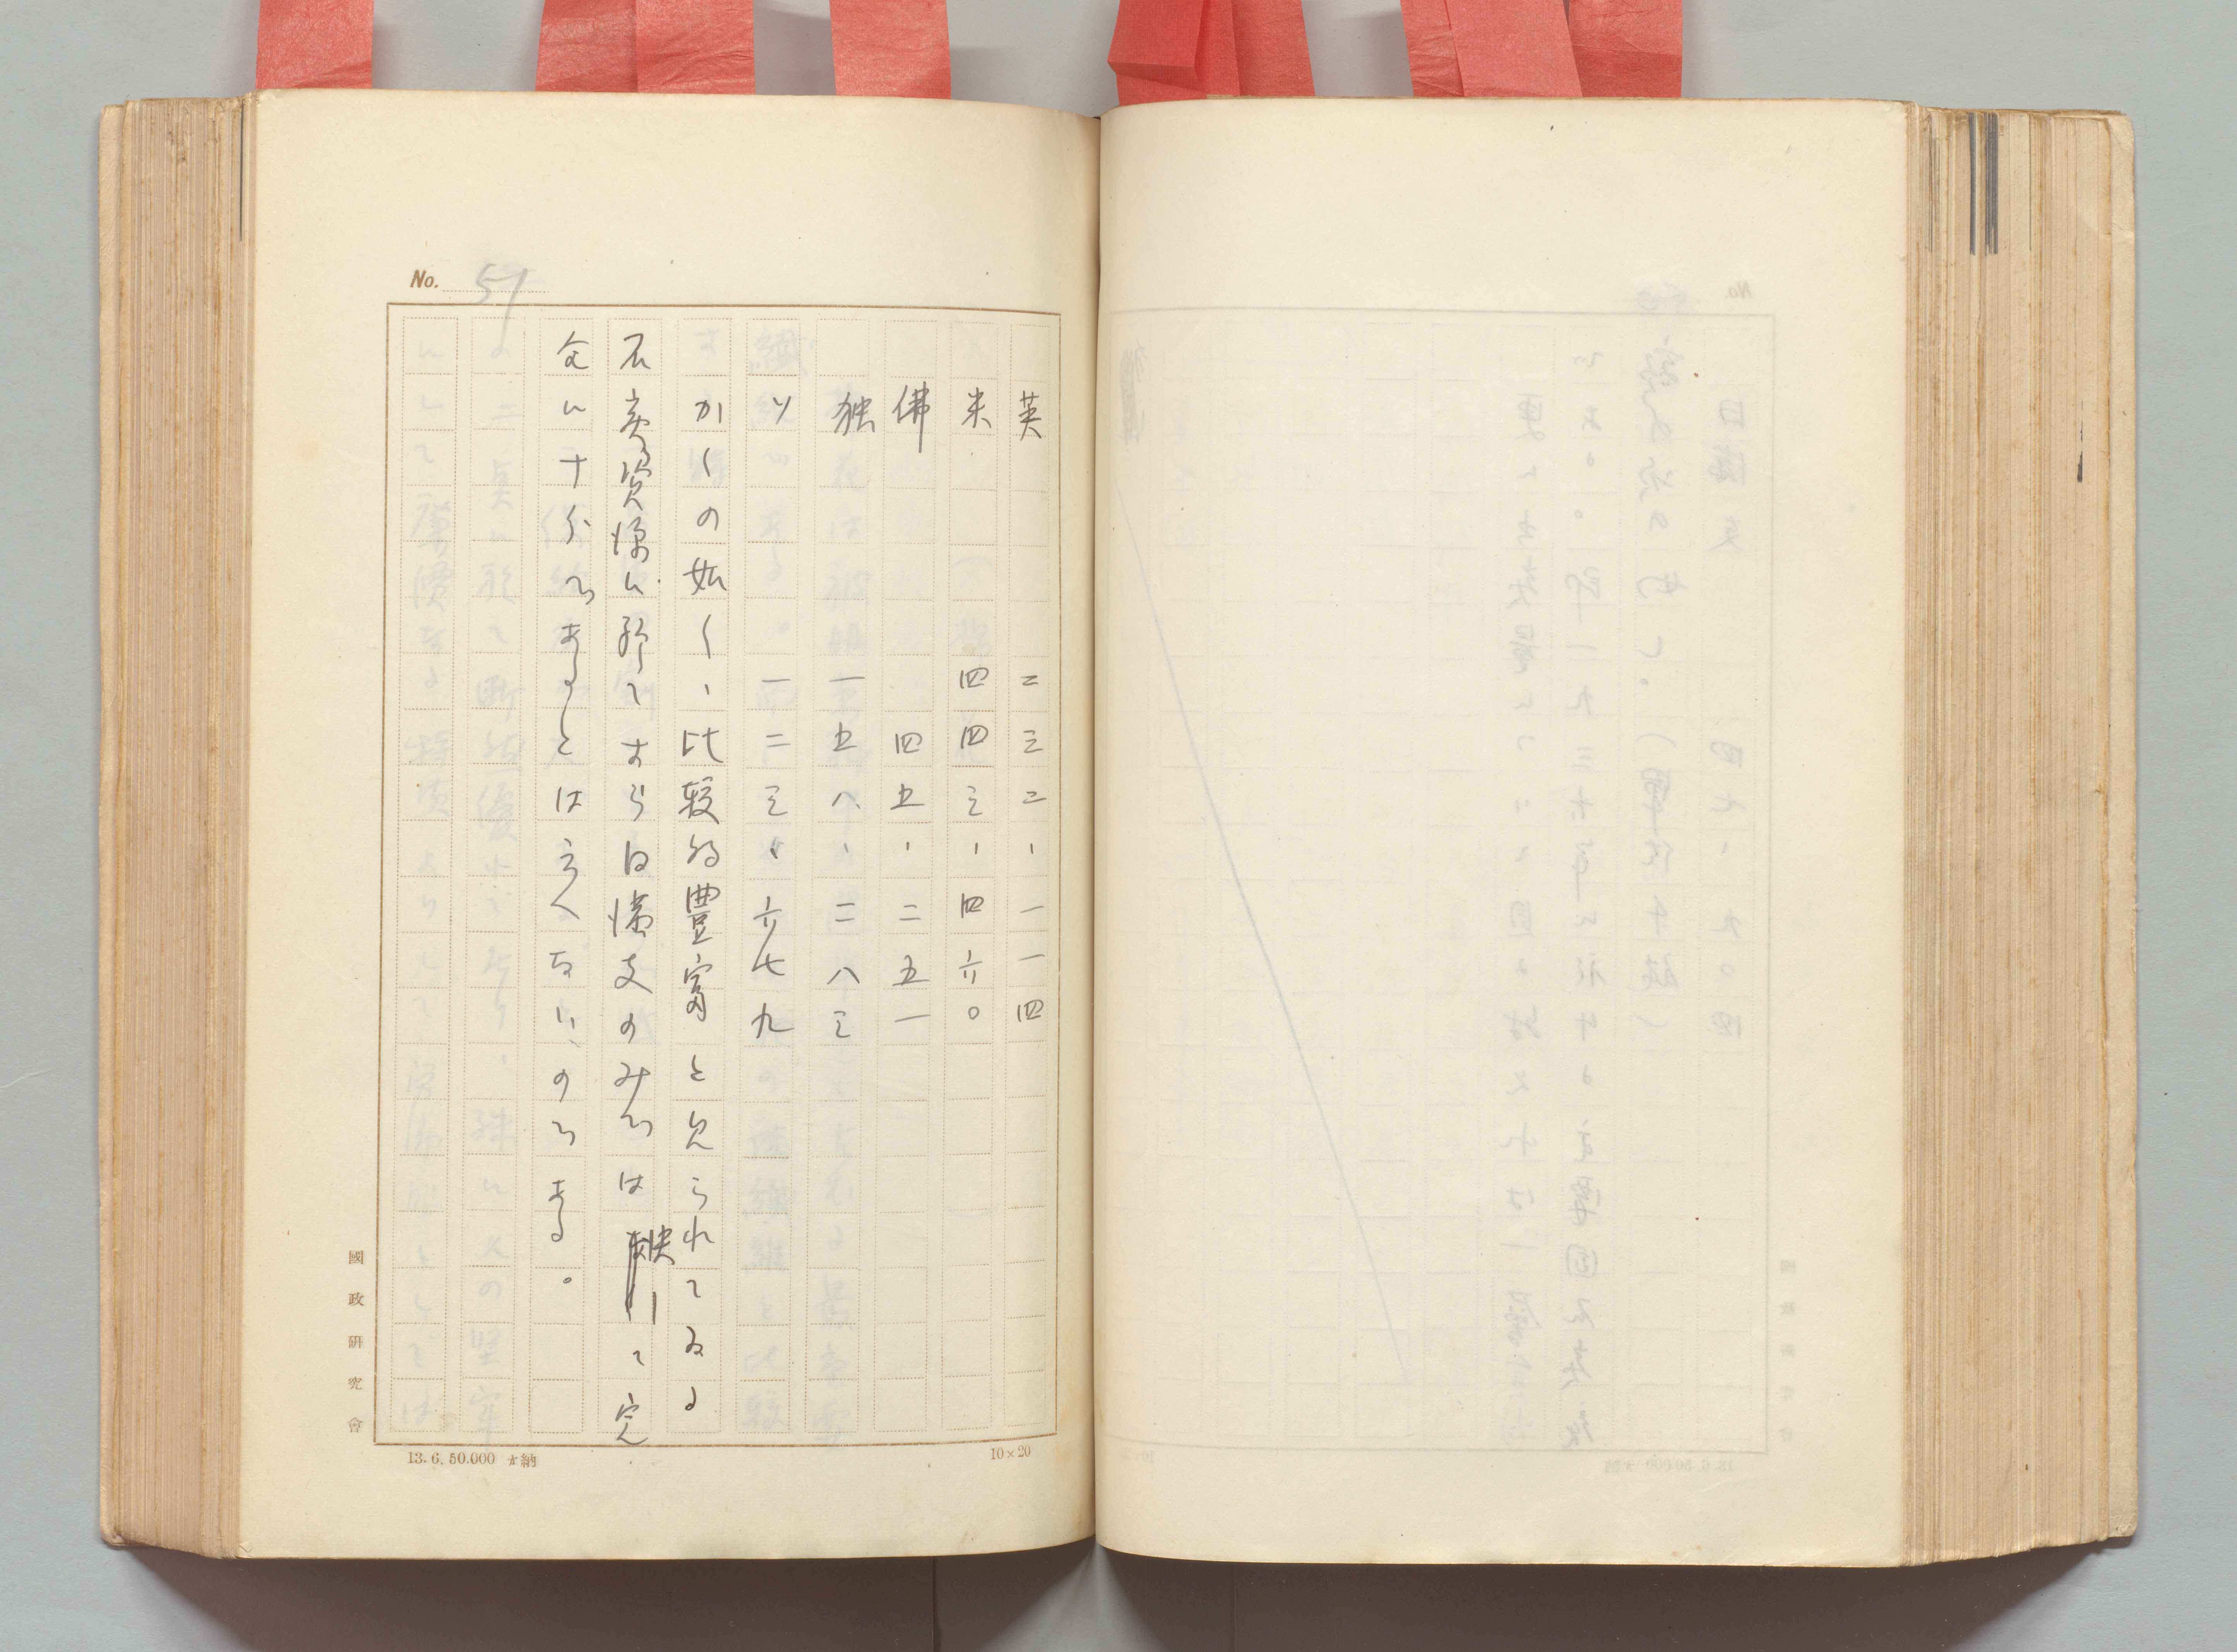 No. 51
英 二三二、一一四
米 四四三、四六〇
佛 四五、二五一
独 一五八、二八三
ソ 一二三、六七九
かくの如く、比較的豊富と見られてゐる
石炭資源に於てすら日満支のみでは決して完
全に十分であるとは云へないのである。
國政研究會
13.6.50.000 納
10×20